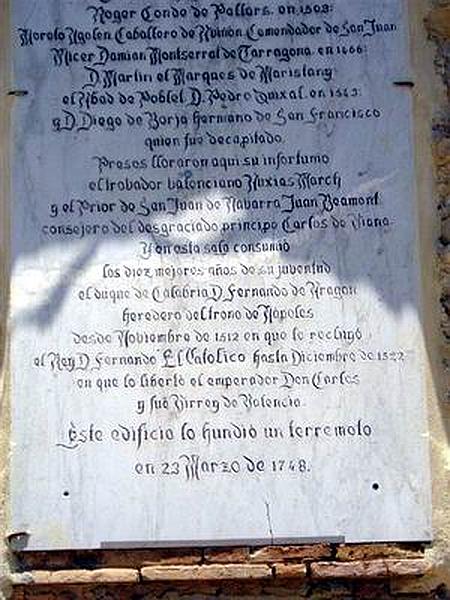 Roger Conde de Pallars, en 1503:
Morolo Ugolen Caballero de Aviñon Comendador de San Juan
Micer Damian Montserrat de Tarragona, en 1666:
D. Martin el Marques de Maristany:
el Abad de Poblet D. Pedro Quixal, en 1543:
y D. Diego de Borja hermano de San Francisco
quien fue decapitado.
Presos lloraron aqui su infortunio
el trobador valenciano Auxias March
y el Prior de San Juan de Navarra Juan Beamont
consejero del desgraciado principe Carlos de Viana.
Y en esta sala consumió
los diez mejores años de su juventud
el duque de Calabria D. Fernando de Aragon
heredero del trono de Napoles
desde Noviembre de 1512 en que lo recluyó
el Rey D. Fernando El Catolico hasta Diciembre de 1522
en que lo libertó el emperador Don Carlos
y fue Virrey de Valencia.
Este edificio lo hundió un terremoto
en 23 Marzo de 1748.